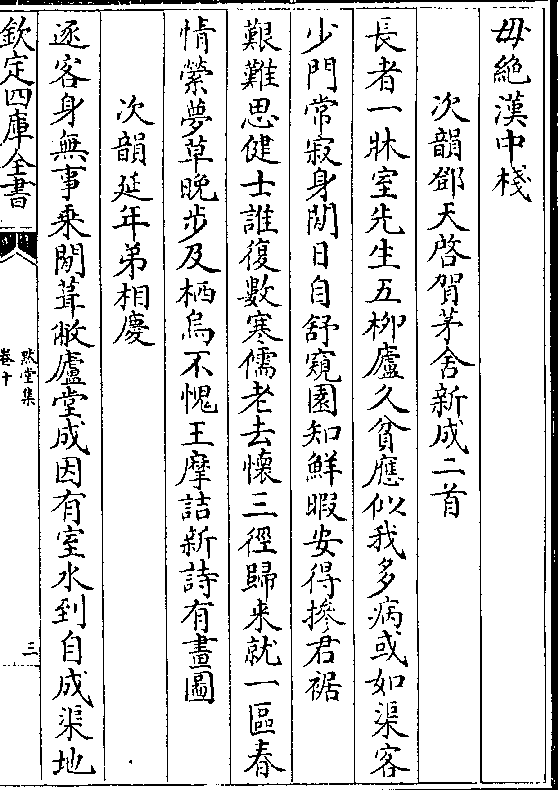 毋絶漢中棧
次韻鄧天啓賀茅舍新成二首
長者一牀室先生五柳廬久貧應似我多病或如渠客
少門常寂身閒日自舒窺園知鮮暇安得摻君裾
艱難思健士誰復數寒儒老去懷三徑歸来就一區春
情縈夢草晚步及栖烏不愧王摩詰新詩有畫圖
次韻延年弟相慶
逐客身無事乗閒葺敝廬堂成因有室水到自成渠地
欽定四庫全書
黙堂集
卷十
三